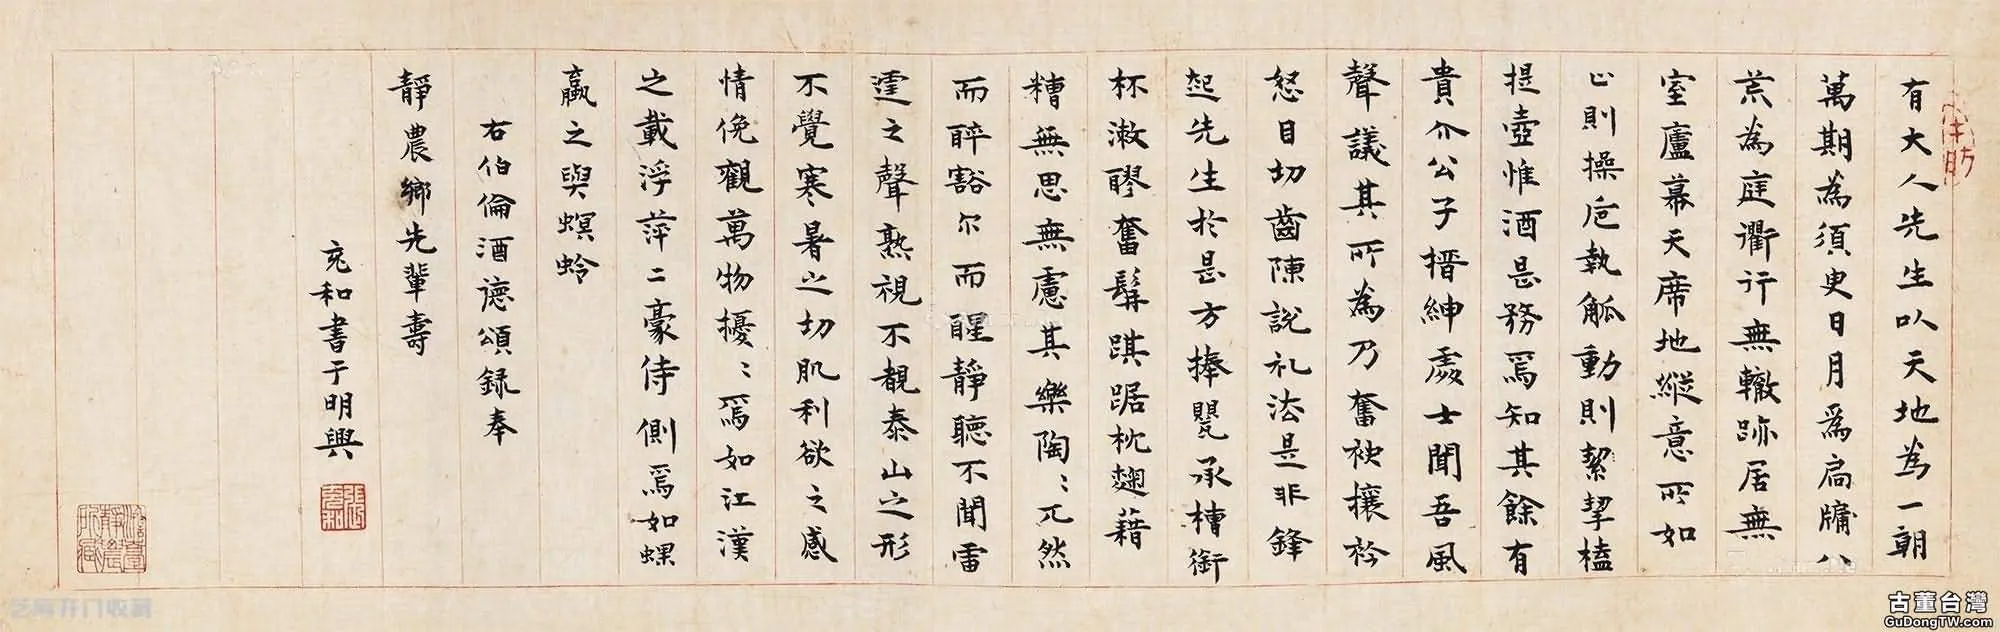 有大人先生以天地為一朝
萬期為須臾日月為扃牖八
荒為庭衢行無轍跡居無
室廬幕天席地縱意所如
止則操卮執觚動則絜挈榼
提壺惟酒是務焉知其餘有
貴介公子搢紳處士聞吾風
聲議其所為乃奮袂攘衿
怒目切齒陳說礼法是非鋒
起先生於是方捧甖承槽銜
杯漱醪奮髯踑踞枕麴藉
糟無思無慮其樂陶〻兀然
而醉豁尔而醒靜聽不聞雷
霆之聲熟視不覩泰山之形
不覺寒暑之切肌利欲之感
情俛觀萬物擾〻焉如江漢
之載浮萍二豪侍側焉如蜾
蠃之與螟蛉
右伯倫酒德頌録奉
靜農鄉先輩壽
充和書于明興
張充和
澹臺靜農所藏
芝麻开门收藏
古董台灣
GuDongTW.com